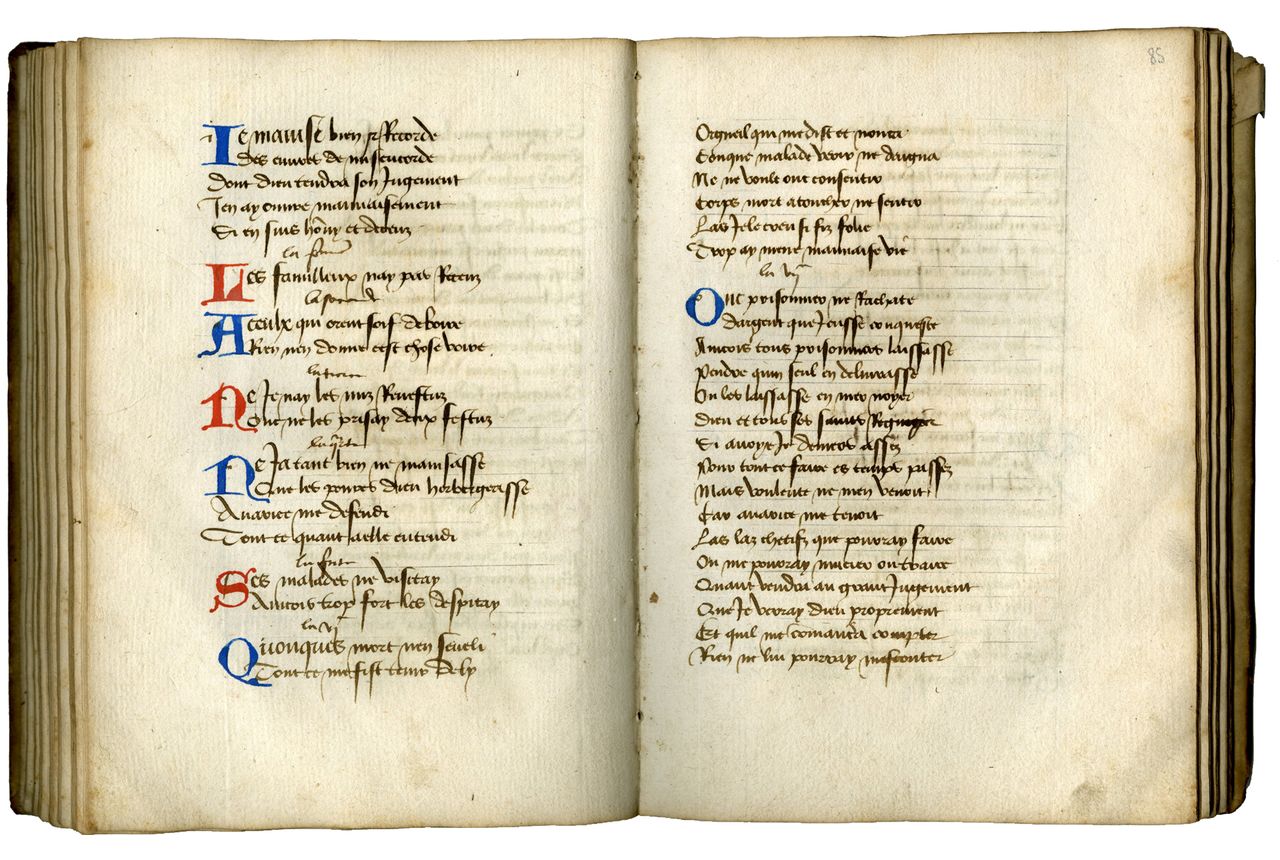 Je mavise bien et Recorde
des euvres de misericorde
Dont dieu tendra son Jugement
Jen ay ouvre mauvaisement
Si en suis honny et deceuz
la premiere
Les familleux nay pas Receuz
la seconde
A ceulx qui orent soif de boire
Rien nen donne cest chose voire
la tierce
Ne Je nay les nuz Revestuz
Que ne les prisay deux festuz
la quarte
Ne Ja tant bien ne mamasse
Que les povres dieu herbergeasse
Avarice me defendi
Tout ce quant a elle entendi
la quinte
Les malades ne visitay
Aincois trop fort les despitay
la vj
Quonques mort nen seveli
Tout ce me fist tenir de ly
85
Orgueil qui me dist et nonca
Conque malade veoir ne daigna
Ne ne voult onc consentir
Corps mort a toucher ne sentir
Las Je le creu si fiz folie
Trop ay mene mauvaise vie
la vij
Onc prisonnier ne Rachate
dargent que Jeusse conqueste
Aincois tous prisonniers laissasse
Pendre quun seul en delivrasse
On les laissasse en mer noyer
Dieu et tous ses saints
Si avoye Je deniers assez
Pour tout ce faire es temps passez
Mais voulente ne men venoit
Car avarice me tenoit
Las laz chetifz que pourray faire
Ou me pourray mucier ou traire
Quant vendra au grant Jugement
Que Je verray dieu proprement
Et quil me comandera compter
Rien ne lui pourray mesconter